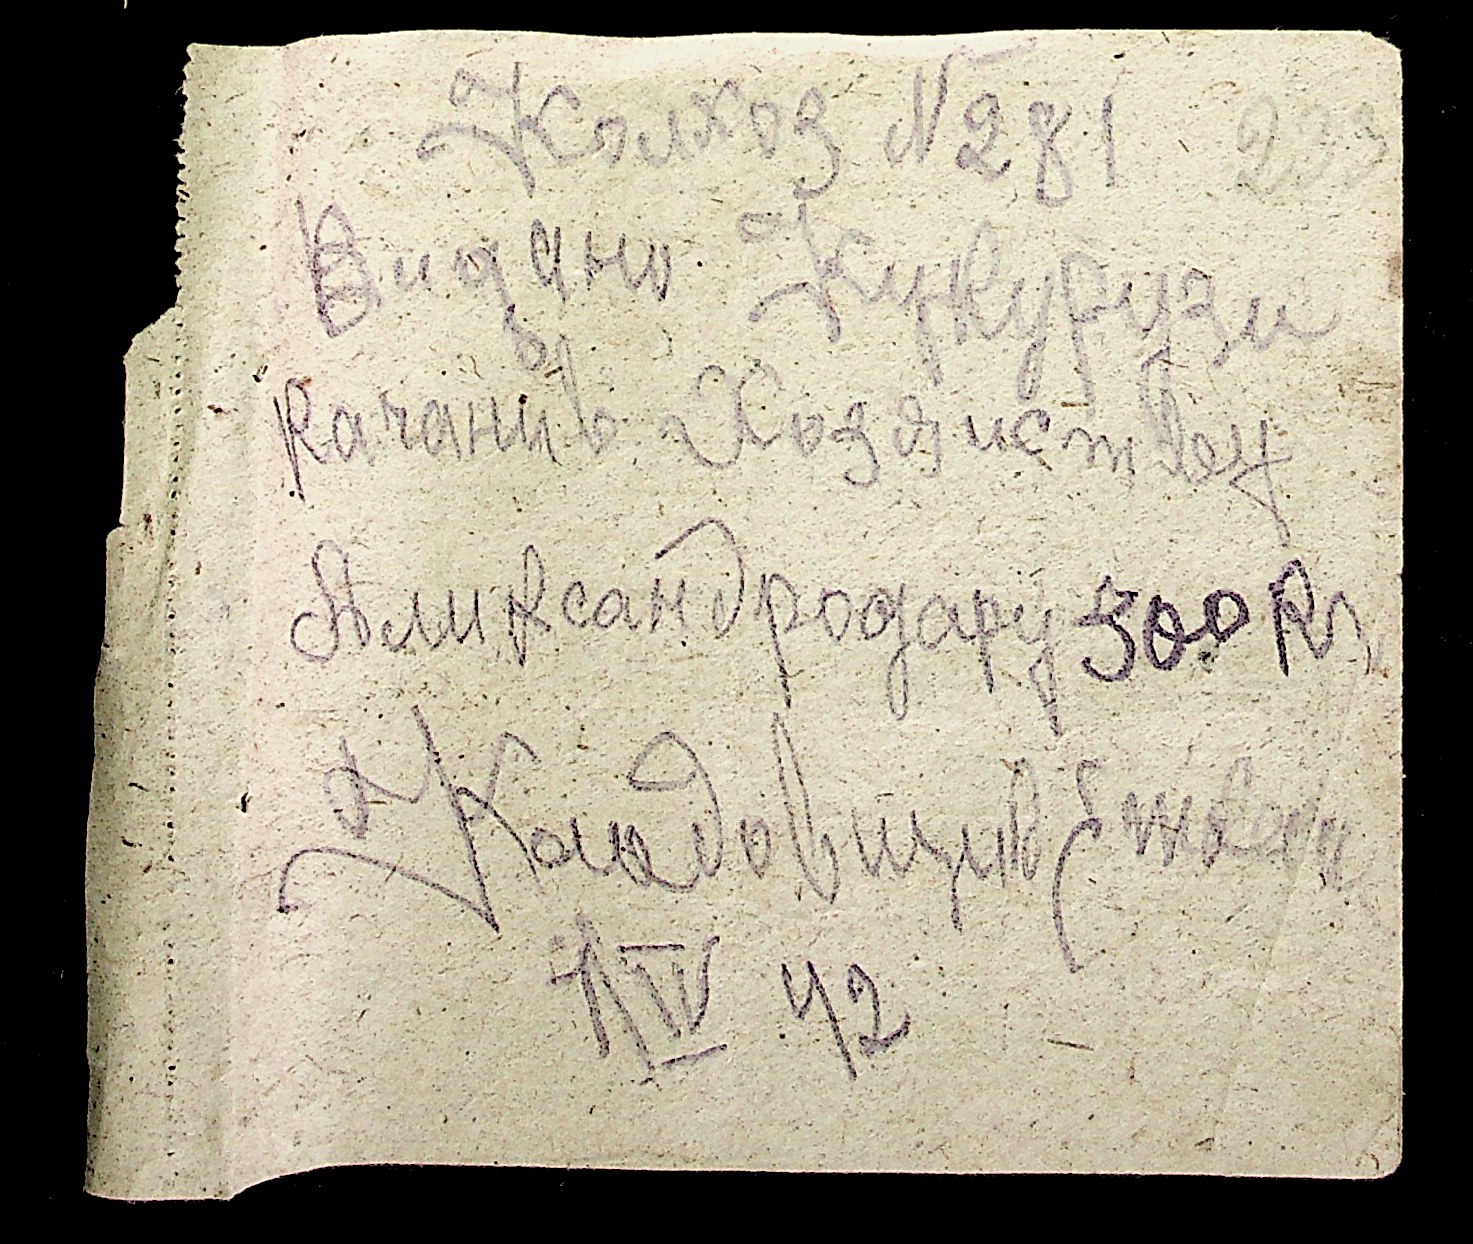 Колхоз № 281 233
Видано Кукурузи
в
качанив Хозяиству
Александродару 300 кг
Кладовщик
1 IV 42